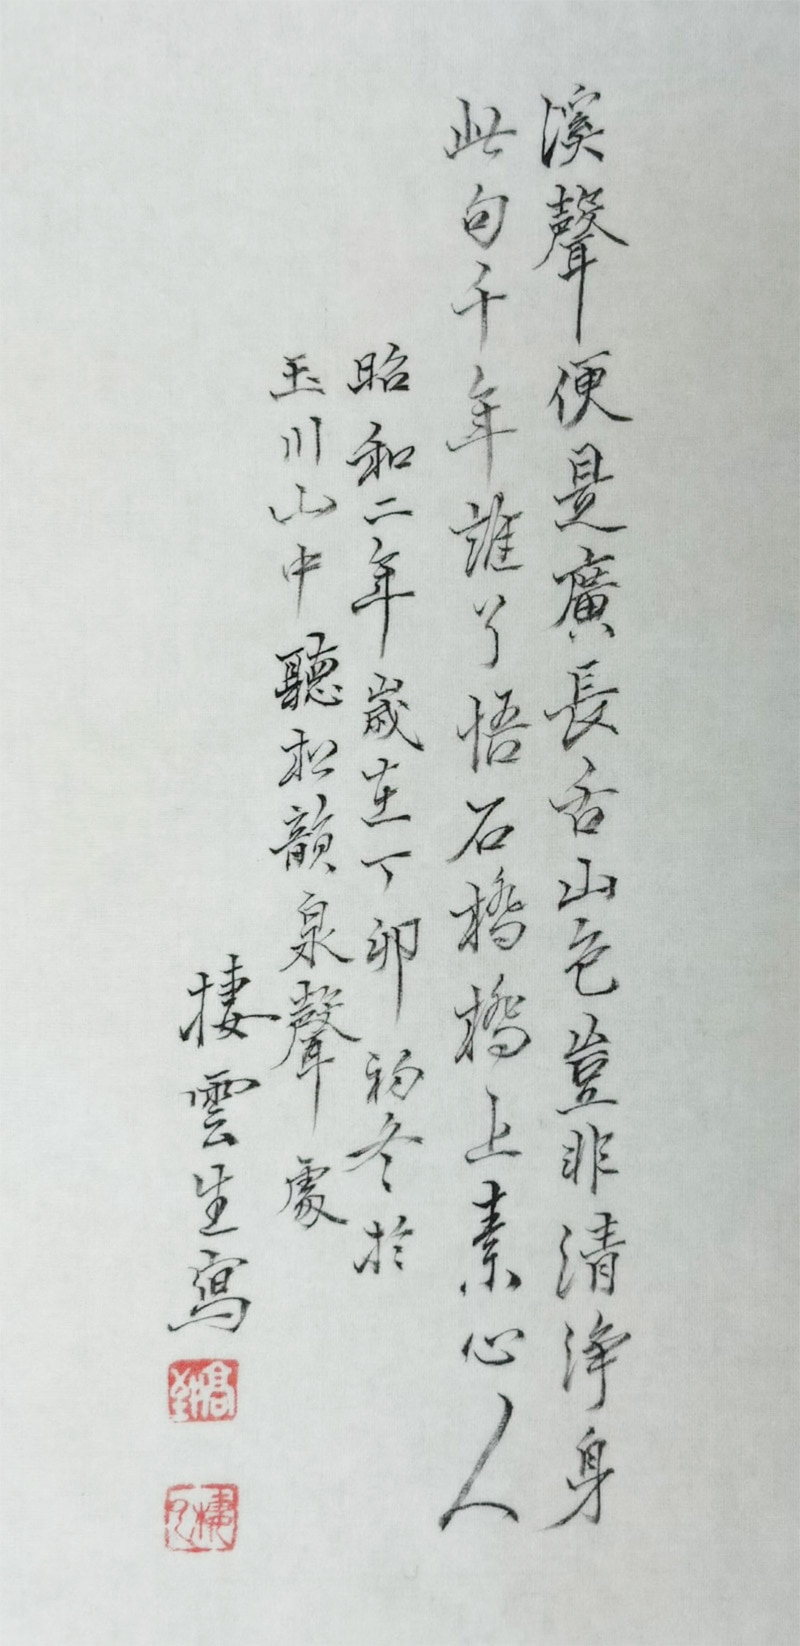 溪聲便是廣長舌山色豈非清浄身
此句千年誰了悟石橋橋上素心人
昭和二年歲在丁卯初冬於
玉川山中聽松韻泉聲處
棲雲生寫